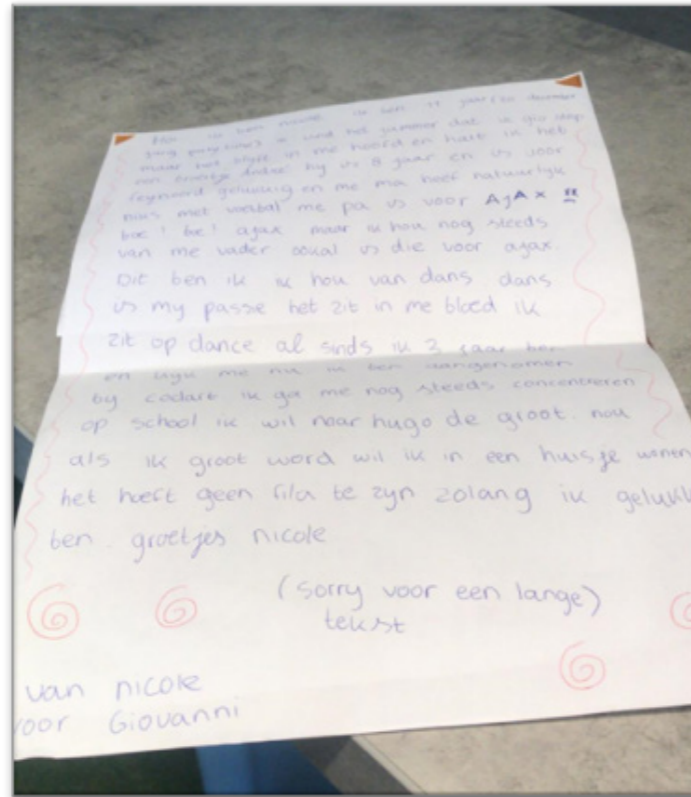 Hoi ik ben nicole ik ben 11 jaar
vind het jammer dat ik gio
maar het blijft in me hoord en hart ik het
een broertje hy is 8 jaar en is voor
feyenoord gelukkig en me ma heef natuurlijk
niks met voetbal me pa is voor AJAX
boe! boe! ajax maar ik hou nog steeds
van me vader ookal is die voor ajax.
Dit ben ik ik hou van dans dans
is my passe het zit in me bloed ik
zit op dance al sinds ik 3 jaar ben
en kyk me nu ik ben aangenomen
by codart ik ga me nog steeds concentreren
op school ik wil naar hugo de groot. nou
als ik groot word wil ik in een huisje wonen
het hoeft geen fila te zyn zolang ik gelukk
ben. groetjes nicole
(sorry voor een lange)
tekst
van nicole
voor Giovanni